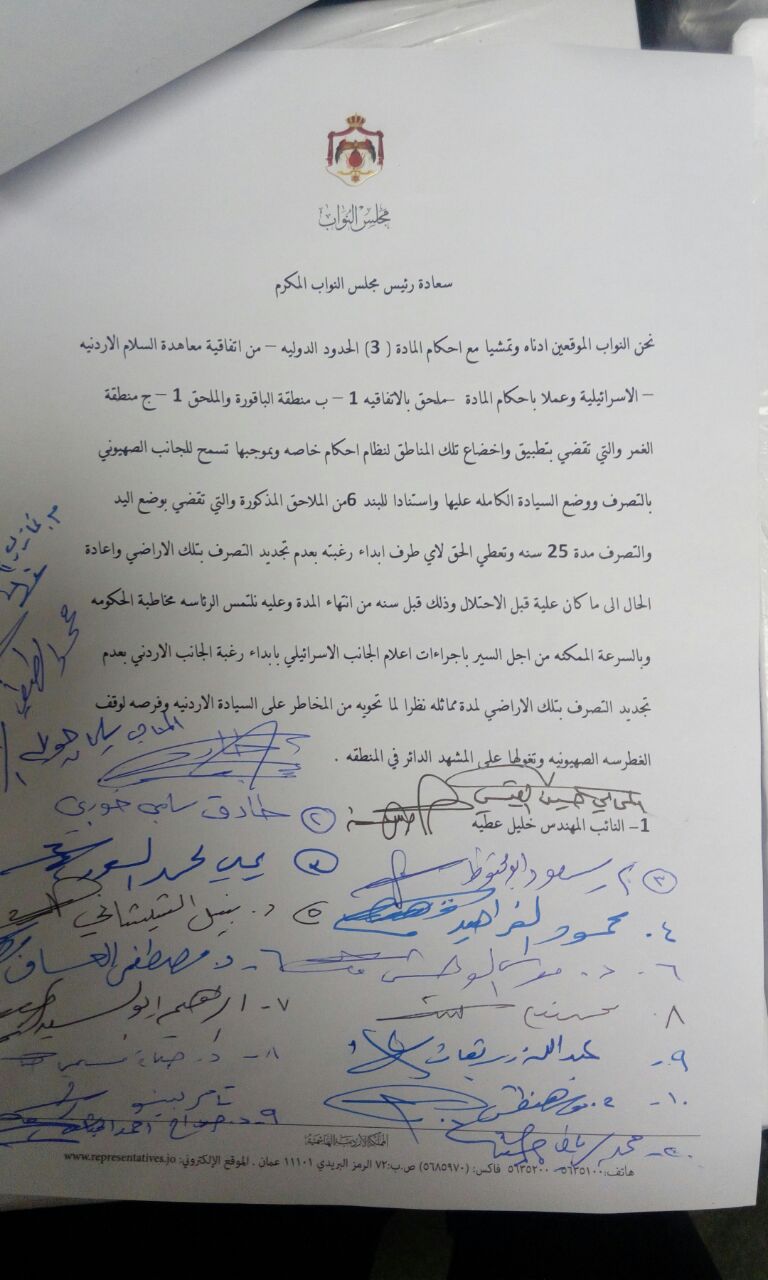 مجلس النواب
سعادة رئيس مجلس النواب المكرم
نحن النواب الموقعين ادناه وتمشيا مع احكام المادة ( 3) الحدود الدوليه – من اتفاقية معاهدة السلام الاردنيه
– الاسرائيلية وعملا باحكام المادة –ملحق بالاتفاقيه 1 – ب منطقة الباقورة والملحق 1 –ج منطقة
الغمر والتي تقضي بتطبيق واخضاع تلك المناطق لنظام احكام خاصه وبموجبها تسمح للجانب الصهيوني
بالتصرف ووضع السيادة الكامله عليها واستنادا للبند 6من الملاحق المذكورة والتي تقضي بوضع اليد
والتصرف مدة 25 سنه وتعطي الحق لاي طرف ابداء رغبته بعدم تجديد التصرف بتلك الاراضي واعادة
الحال الى ما كان علية قبل الاحتلال وذلك قبل سنه من انتهاء المدة وعليه نلتمس الرئاسه مخاطبة الحكومه
وبالسرعة الممكنه من اجل السير باجراءات اعلام الجانب الاسرائيلي بابداء رغبة الجانب الاردني بعدم
تجديد التصرف بتلك الاراضي لمدة مماثله نظرا لما تحويه من المخاطر على السيادة الاردنيه وفرصه لوقف
الغطرسه الصهيونيه وتغولها على المشهد الدائر في المنطقه .
1– النائب المهندس خليل عطيه
٢ طارق سامي خوري
٣ يحيى محمد السعود
٤. محمود الفراهيد
٥ د. نبيل الشيشاني
٦- د. مصطفى العساف
٧- ابراهيم ابو السيد
٨.
٩- عبدالله زريقات
١٠-
تامر بينو
المملكة الأردنية الهاشمية
هاتف: ٥٦٣٥١٠٠ ـ ٥٦٣٥٢٠٠ فاكس: (٥٦٨٥٩٧٠) ص.ب:٧٢ الرمز البريدي ١١١٠١ عمان . الموقع الإلكتروني: www.representatives.jo